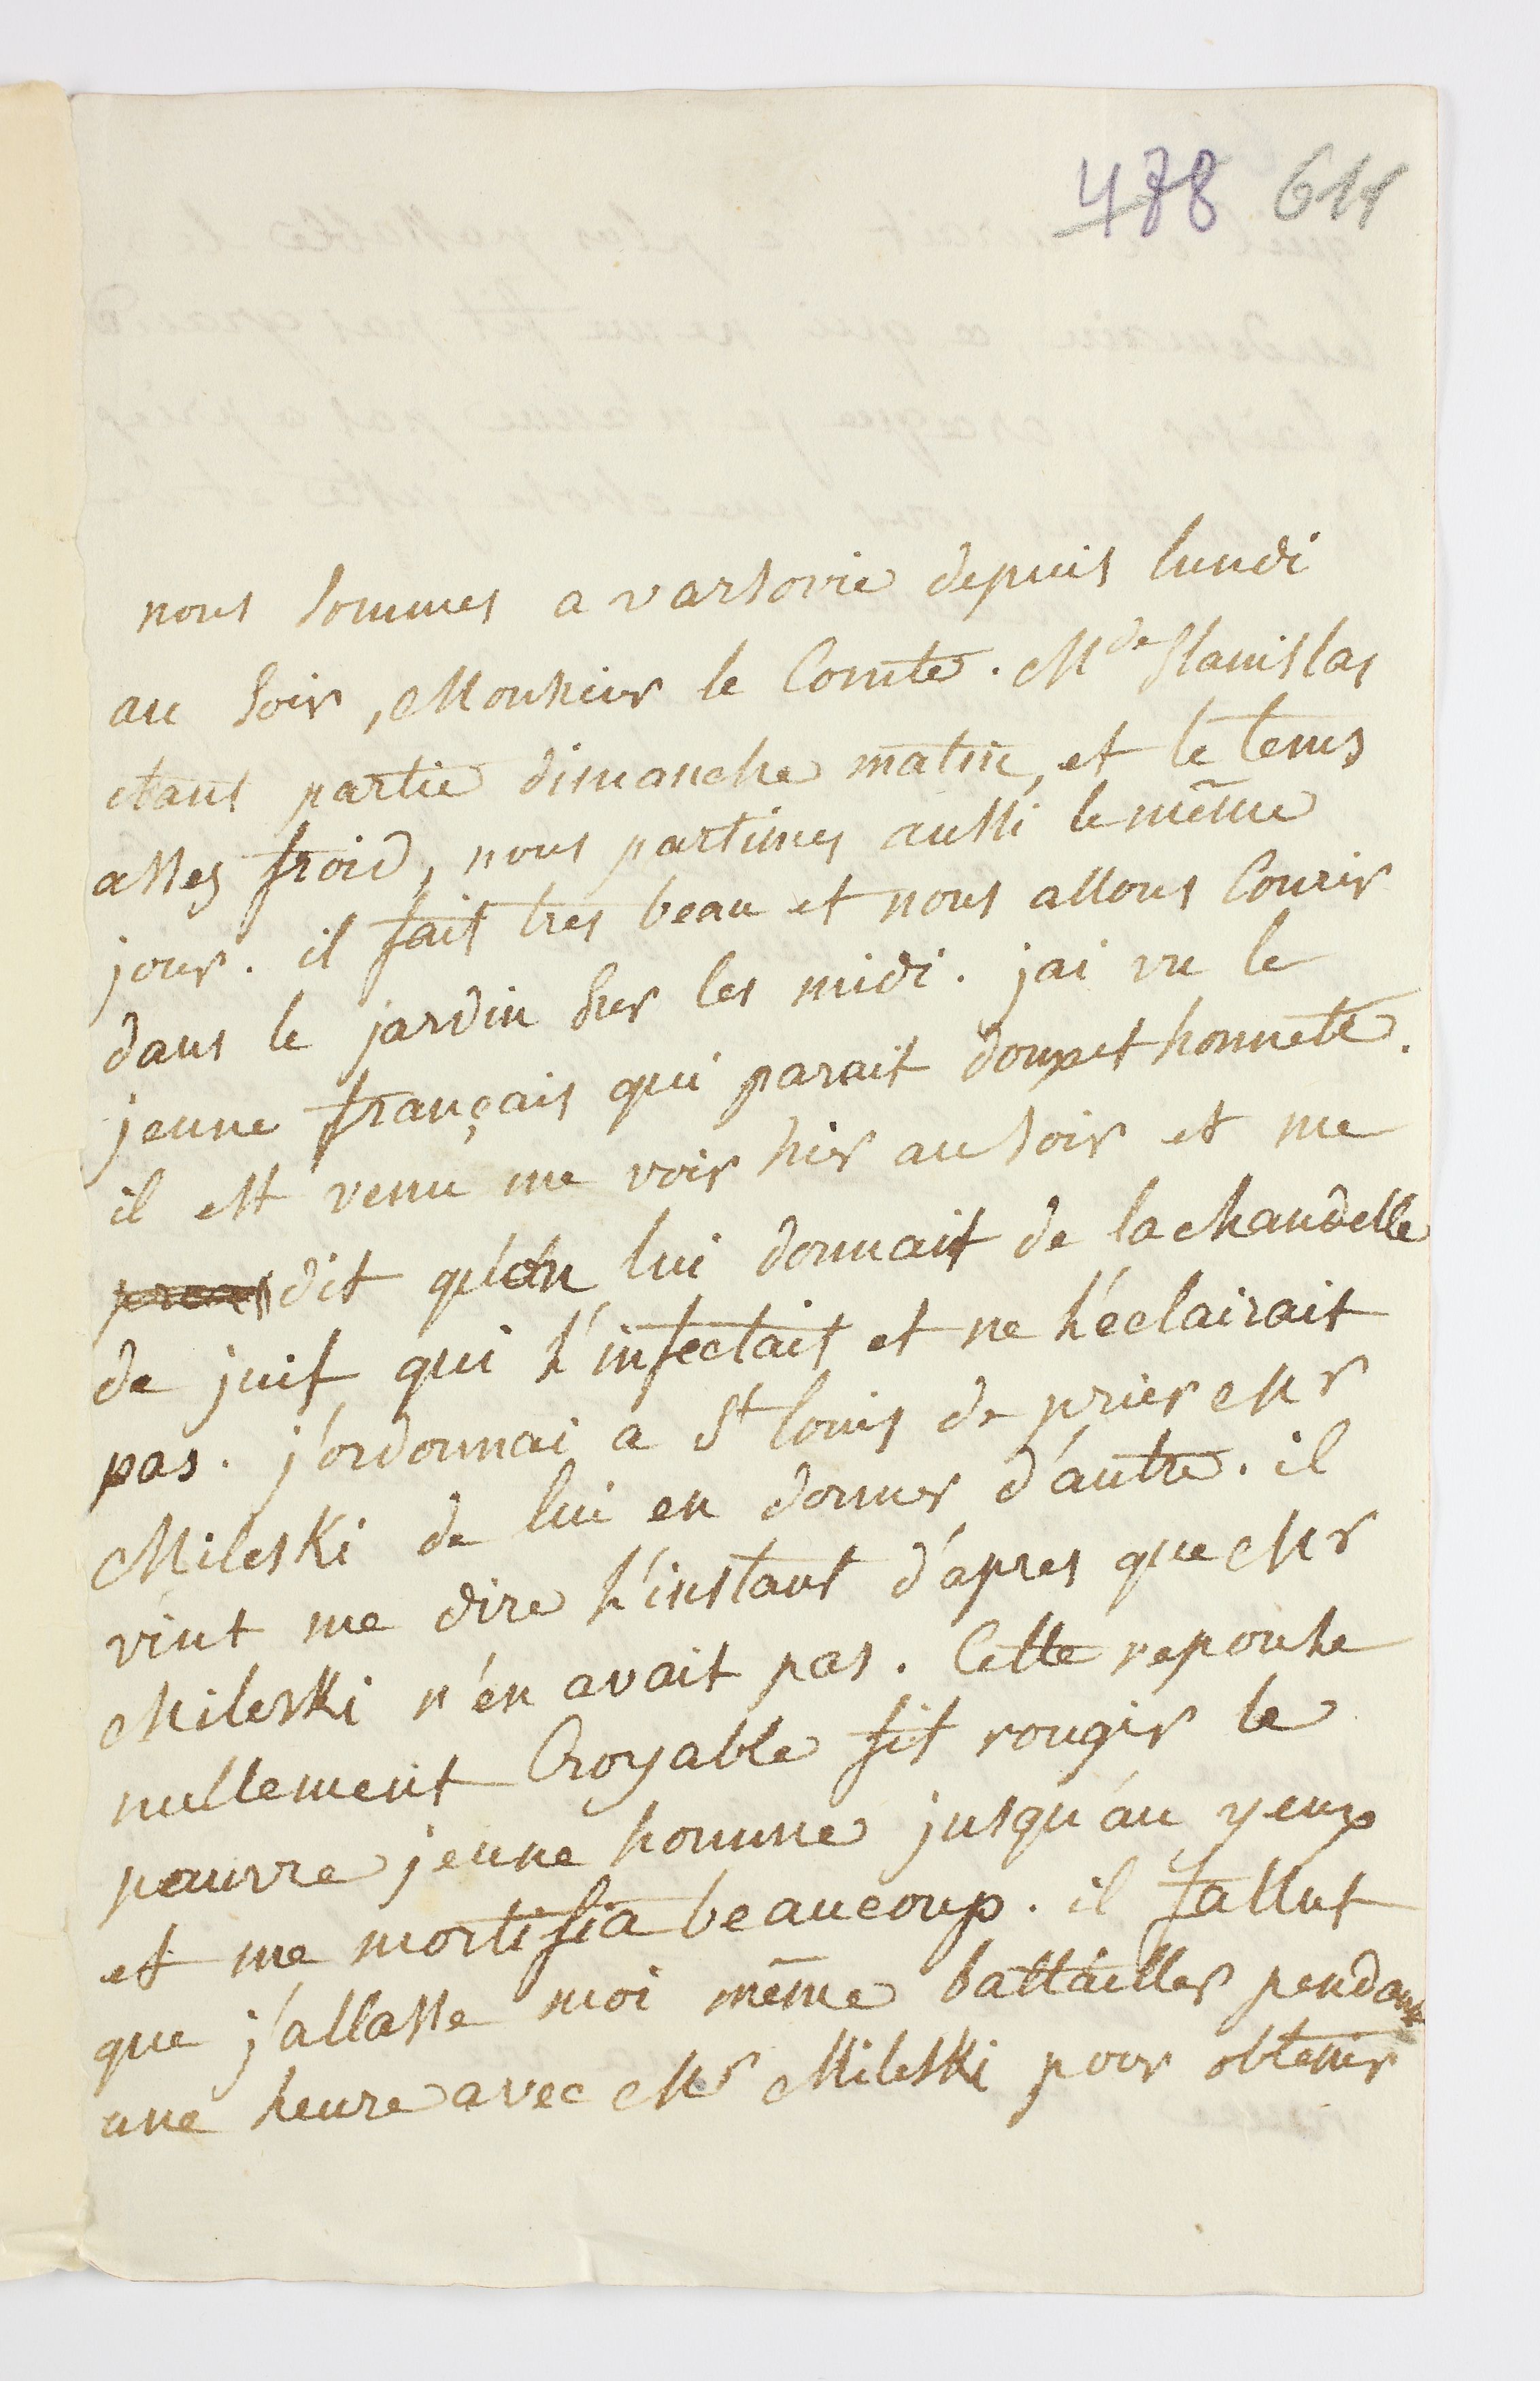 478 611
nous sommes a varsovie depuis lundi
au soir, Monsieur le Comte. Mde Stanislas
etant partie dimanche matin, et le tems
assez froid, nous partimes aussi le même
jour. il fait tres beau et nous allons Courir
dans le jardin sur les midi. jai vu le
jeune français qui parait doux et honnete.
il est venu me voir hier au soir et me
dit qu'on lui donnait de la chandelle
de juif qui l'infectait et ne l'éclairait
pas. j'ordonnai a St louis de prier Mr
Mileski de lui en donner d'autre. il
vint me dire l'instant d'apres que Mr
Mileski n'en avait pas. Cette reponse
nullement Croyable fit rougir le
pauvre jeune homme jusqu'au yeux
et me mortifia beaucoup. il fallut
que j'allasse moi même battailler pendant
une heure avec Mr Mileski pour obtenir